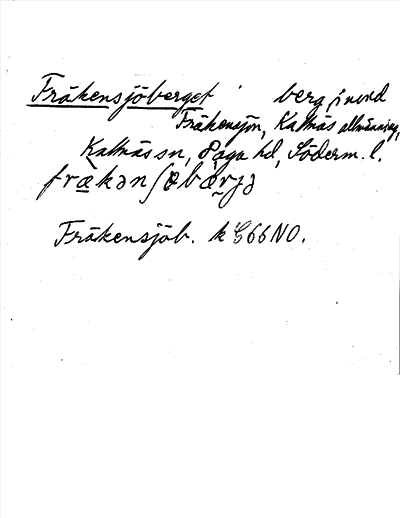 Fräkensjöberget berg, i nord
Fräkensjön, Kattnäs allmänning,
Kattnäs sn, Daga hd, Söderm. l.
frækən ʃøbærjə
Fräkensjöb. k G66NO.